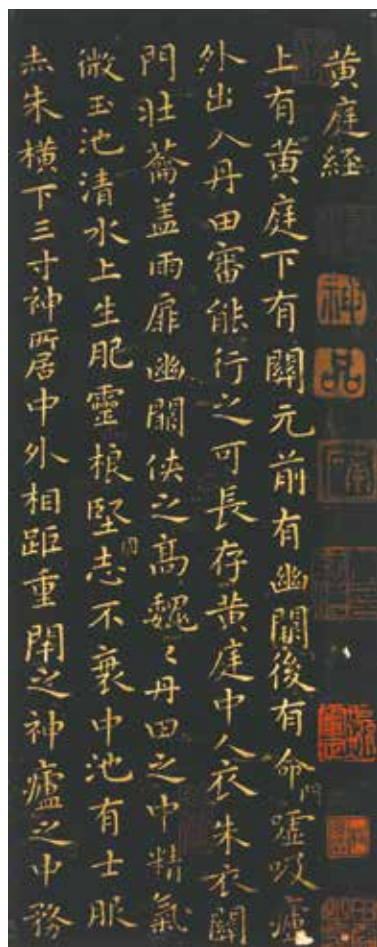 黄庭経
上有黄庭下有關元前有幽闕後有命門噓吸廬
外出入丹田審能行之可長存黄庭中人衣朱衣關
門壯蘥盖兩扉幽闕俠之髙魏〻丹田之中精氣
微玉池清水上生肥靈根堅固志不衰中池有士服
赤朱橫下三寸神所居中外相距重閇之神廬之中務
神品